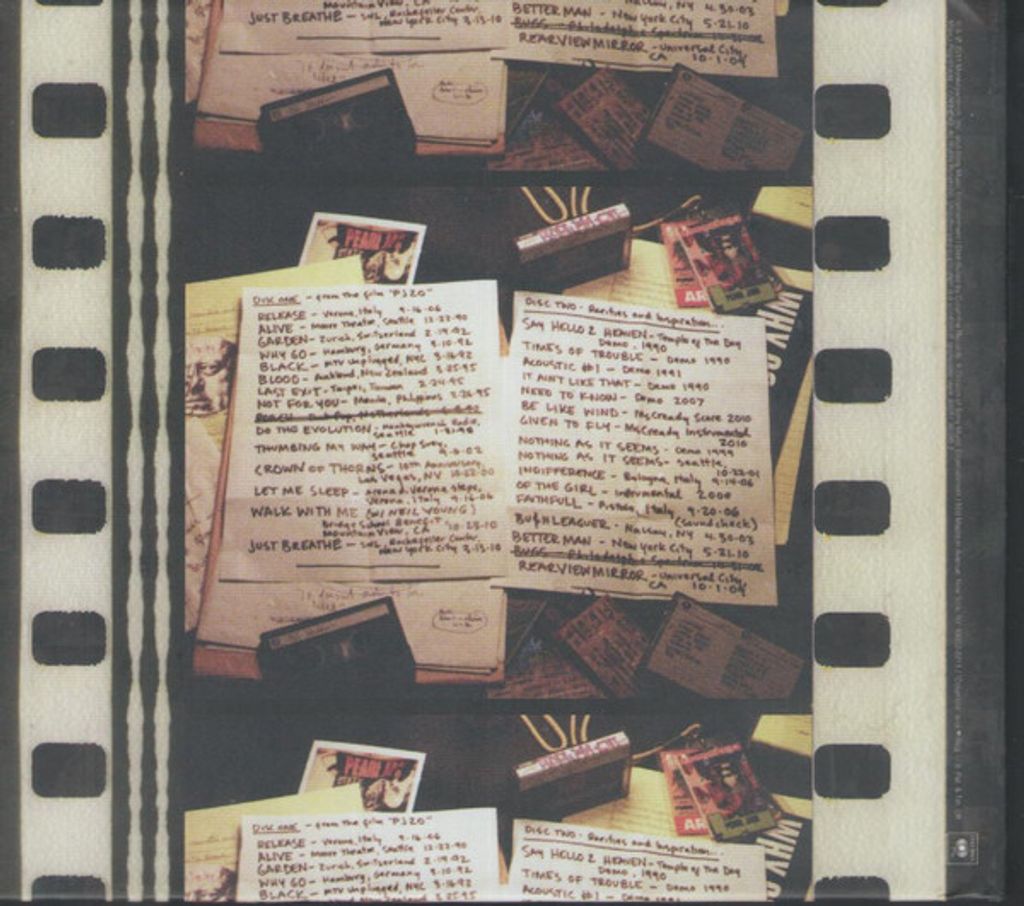 JUST BREATHE - SNL, Rockefeller Center,
New York City 3-13-10
BETTER MAN - New York City 5-21.10
BUGS - Philadelphia Spectrum 10-31-09
REARVIEWMIRROR - Universal City,
CA 10-1-09
PEARL JAM
DISC ONE - from the film "PJ20"
RELEASE - Verona, Italy 9-16-06
ALIVE - Moore Theater, Seattle 12-22-90
GARDEN - Zurich, Switzerland 2-19-92
WHY GO - Hamburg, Germany 3-10-92
BLACK - MTV unplugged, NYC 3-16-92
BLOOD - Auckland, New Zealand 3-25-95
LAST EXIT - Taipei, Taiwan 2-24-95
NOT FOR YOU - Manila, Philippines 2-26-95
DO THE EVOLUTION - Monkeywrench Radio,
Seattle 1-31-98
THUMBING MY WAY - Chop Suey,
Seattle 9-6-02
CROWN OF THORNS - 10th Anniversary,
Las Vegas, NV 10-22-00
LET ME SLEEP - Arena di Verona steps,
Verona, Italy 9-16-06
WALK WITH ME (W/ NEIL YOUNG)
Bridge School Benefit
Mountain View, CA 10-23-10
JUST BREATHE - SNL, Rockefeller Center,
New York City 3-13-10
DISC TWO - Rarities and Inspiration...
SAY HELLO 2 HEAVEN - Temple of the Dog
Demo, 1990
TIMES OF TROUBLE - Demo 1990
ACOUSTIC #1 - Demo 1991
IT AIN'T LIKE THAT - Demo 1990
NEED TO KNOW - Demo 2007
BE LIKE WIND - McCready Score 2010
GIVEN TO FLY - McCready Instrumental
2010
NOTHING AS IT SEEMS - Demo 1999
NOTHING AS IT SEEMS - Seattle,
10-22-01
INDIFFERENCE - Bologna, Italy 9-14-06
OF THE GIRL - Instrumental 2000
FAITHFULL - Pistoia, Italy, 9-20-06
(soundcheck)
BU$HLEAGUER - Nassau, NY 4.30.03
BETTER MAN - New York City 5-21.10
BUGS - Philadelphia Spectrum 10-31-09
REARVIEWMIRROR - Universal City,
CA 10-1-09
AR
WHY GO
PEARL JAM
DISC ONE - from the film "PJ20"
RELEASE - Verona, Italy 9-16-06
ALIVE - Moore Theater, Seattle 12-22-90
GARDEN - Zurich, Switzerland 2-19-92
WHY GO - Hamburg, Germany 3-10-92
BLACK - MTV unplugged, NYC 3-16-92
DISC TWO - Rarities and Inspiration...
SAY HELLO 2 HEAVEN - Temple of the Dog
Demo, 1990
TIMES OF TROUBLE - Demo 1990
ACOUSTIC #1 - Demo 1991
AR
WHY